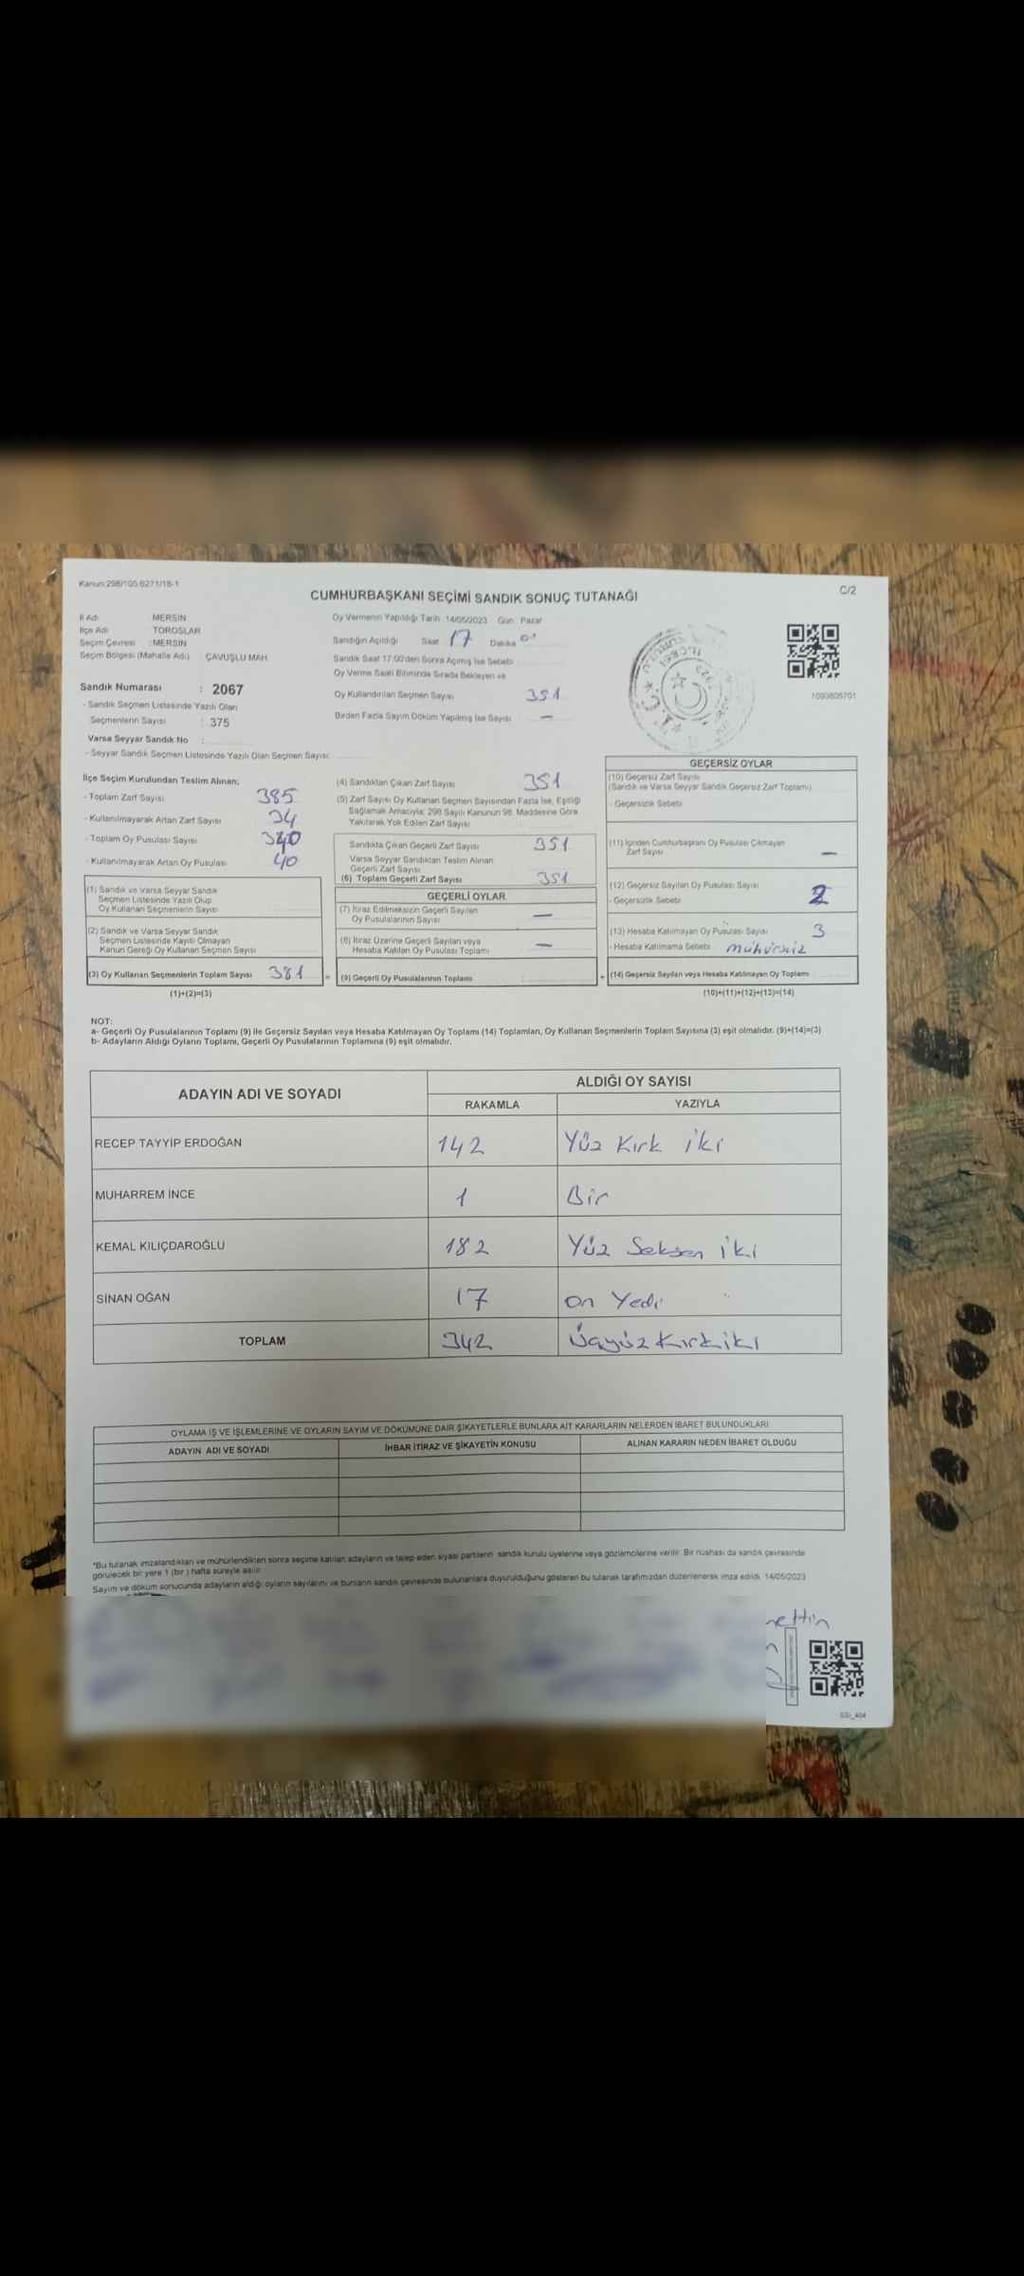 Kanun:298/105 6271/18-1
C/2
CUMHURBAŞKANI SEÇİMİ SANDIK SONUÇ TUTANAĞI
İl Adı : MERSİN
İlçe Adı : TOROSLAR
Seçim Çevresi : MERSİN
Seçim Bölgesi (Mahalle Adı) : ÇAVUŞLU MAH.
Sandık Numarası : 2067
- Sandık Seçmen Listesinde Yazılı Olan
Seçmenlerin Sayısı : 375
Varsa Seyyar Sandık No :
- Seyyar Sandık Seçmen Listesinde Yazılı Olan Seçmen Sayısı:
Oy Vermenin Yapıldığı Tarih :14/05/2023 Gün: Pazar
Sandığın Açıldığı Saat 17 Dakika
Sandık Saat 17.00'den Sonra Açılmış İse Sebebi
Oy Verme Saati Bitiminde Sırada Bekleyen ve
Oy Kullandırılan Seçmen Sayısı 351
Birden Fazla Sayım Döküm Yapılmış İse Sayısı —
1093605701
İlçe Seçim Kurulundan Teslim Alınan;
- Toplam Zarf Sayısı 385
- Kullanılmayarak Artan Zarf Sayısı 34
- Toplam Oy Pusulası Sayısı
- Kullanılmayarak Artan Oy Pusulası 40
(1) Sandık ve Varsa Seyyar Sandık
Seçmen Listesinde Yazılı Olup
Oy Kullanan Seçmenlerin Sayısı
(2) Sandık ve Varsa Seyyar Sandık
Seçmen Listesinde Kayıtlı Olmayan
Kanun Gereği Oy Kullanan Seçmen Sayısı
(3) Oy Kullanan Seçmenlerin Toplam Sayısı 381
(1)+(2)=(3)
(4) Sandıktan Çıkan Zarf Sayısı 351
(5) Zarf Sayısı Oy Kullanan Seçmen Sayısından Fazla İse, Eşitliği
Sağlamak Amacıyla; 298 Sayılı Kanunun 98. Maddesine Göre
Yakılarak Yok Edilen Zarf Sayısı
Sandıkta Çıkan Geçerli Zarf Sayısı 351
Varsa Seyyar Sandıktan Teslim Alınan
Geçerli Zarf Sayısı
(6) Toplam Geçerli Zarf Sayısı 351
GEÇERLİ OYLAR
(7) İtiraz Edilmeksizin Geçerli Sayılan
Oy Pusulalarının Sayısı —
(8) İtiraz Üzerine Geçerli Sayılan veya
Hesaba Katılan Oy Pusulası Toplamı —
(9) Geçerli Oy Pusulalarının Toplamı
GEÇERSİZ OYLAR
(10) Geçersiz Zarf Sayısı
(Sandık ve Varsa Seyyar Sandık Geçersiz Zarf Toplamı)
- Geçersizlik Sebebi
(11) İçinden Cumhurbaşkanı Oy Pusulası Çıkmayan
Zarf Sayısı —
(12) Geçersiz Sayılan Oy Pusulası Sayısı 2
- Geçersizlik Sebebi
(13) Hesaba Katılmayan Oy Pusulası Sayısı 3
- Hesaba Katılmama Sebebi mühürsüz
(14) Geçersiz Sayılan veya Hesaba Katılmayan Oy Toplamı
(10)+(11)+(12)+(13)=(14)
NOT:
a- Geçerli Oy Pusulalarının Toplamı (9) ile Geçersiz Sayılan veya Hesaba Katılmayan Oy Toplamı (14) Toplamları, Oy Kullanan Seçmenlerin Toplam Sayısına (3) eşit olmalıdır. (9)+(14)=(3)
b- Adayların Aldığı Oyların Toplamı, Geçerli Oy Pusulalarının Toplamına (9) eşit olmalıdır.
ADAYIN ADI VE SOYADI ALDIĞI OY SAYISI
RAKAMLA YAZIYLA
RECEP TAYYİP ERDOĞAN 142 Yüz Kırk iki
MUHARREM İNCE 1 Bir
KEMAL KILIÇDAROĞLU 182 Yüz Seksen iki
SİNAN OĞAN 17 on Yedi
TOPLAM 342 Üçyüz Kırkiki
OYLAMA İŞ VE İŞLEMLERİNE VE OYLARIN SAYIM VE DÖKÜMÜNE DAİR ŞİKAYETLERLE BUNLARA AİT KARARLARIN NELERDEN İBARET BULUNDUKLARI
ADAYIN ADI VE SOYADI İHBAR İTİRAZ VE ŞİKAYETİN KONUSU ALINAN KARARIN NEDEN İBARET OLDUĞU
*Bu tutanak imzalandıktan ve mühürlendikten sonra seçime katılan adayların ve talep eden siyasi partilerin sandık kurulu üyelerine veya gözlemcilerine verilir. Bir nüshası da sandık çevresinde
görülecek bir yere 1 (bir) hafta süreyle asılır.
Sayım ve döküm sonucunda adayların aldığı oyların sayılarını ve bunların sandık çevresinde bulunanlara duyurulduğunu gösteren bu tutanak tarafımızdan düzenlenerek imza edildi. 14/05/2023